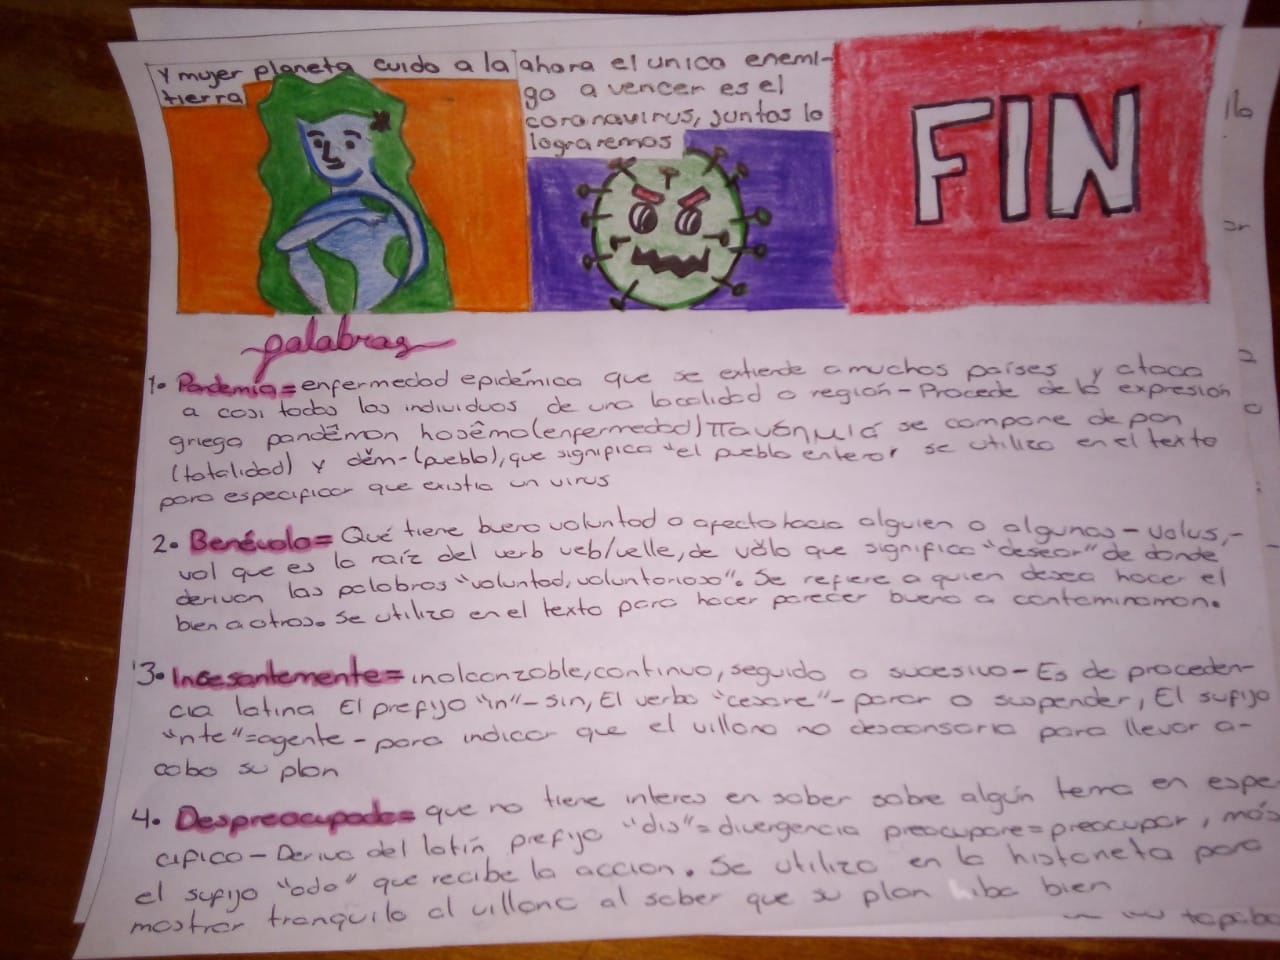 Y mujer planeta cuido a la
tierra
ahora el unico enemi-
go a vencer es el
coronavirus, juntos lo
lograremos
FIN
palabras
1. Pandemia= enfermedad epidémica que se extiende a muchos países y ataca
a casi todos los individuos de una localidad o región - Procede de la expresión
griega pandêmon hosêmo (enfermedad) se compone de pan
(totalidad) y dêm- (pueblo), que significa "el pueblo entero" se utilizo en el texto
para especificar que existia un virus
2. Benévolo= Qué tiene buena voluntad o afecto hacia alguien o algunas - volus,-
vol que es la raíz del verb veb/velle, de vŏlo que significa "desear" de donde
derivan las palabras "voluntad, voluntarioso". Se refiere a quien desea hacer el
bien a otros. Se utilizo en el texto para hacer parecer bueno a contaminaman.
3. Incesantemente= inalcanzable, continuo, seguido o sucesivo - Es de proceden-
cia latina El prefijo "in"- sin, El verbo "cesare"- parar o suspender, El sufijo
"nte"=agente - para indicar que el villano no descansaria para llevar a-
cabo su plan
4. Despreocupado= que no tiene interes en saber sobre algún tema en espe
cifico - Deriva del latín prefijo "dis"= divergencia preocupare= preocupar, más
el sufijo "ado" que recibe la accion. Se utilizo en la historieta para
mostrar tranquilo al villano al saber que su plan hiba bien